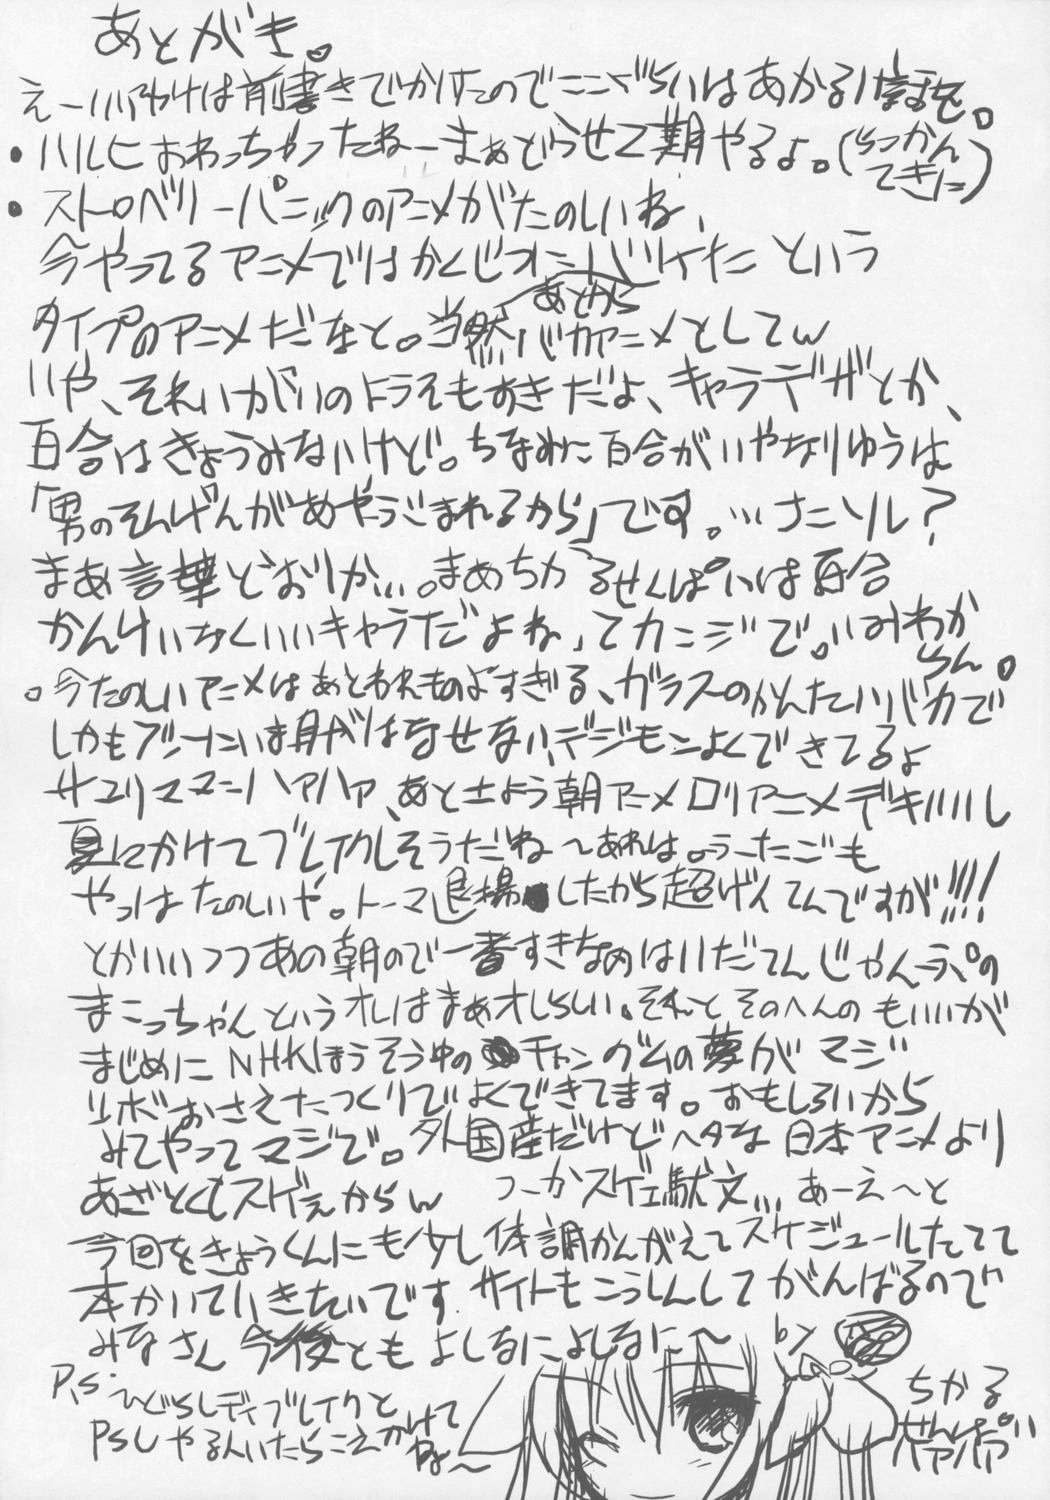 あとがき。
えーいいわけは前書きでかけたのでここぐらいはあかるい話を。
・ハルヒおわっちゃったねーまぁどうせ2期やるよ。(らっかんてきに)
・ストロベリーパニックのアニメがたのしいね、
今やってるアニメではかくじつにバケたという
タイプのアニメだなと。当然あとからバカアニメとしてw
いや、それいがいのトラえもすきだよ、キャラデザとか、
百合はきょうみないけど。ちなみに百合がいやなりゆうは
「男のそんげんがあやうごまれるから」です。…ナニソレ?
まあ言葉どおりか…。まあちかるせんぱいは百合
かんけいなくいいキャラだよね、てカンジで。いみわからん。
。今たのしいアニメはあとわれものよすぎる、ガラスのかんたいバカで
しかもブートには身がはなせない、デジモンよくできてるよ
サユリママンハァハァ、あと土よう朝アニメロリアニメデキいいし
夏にかけてブレイクしそうだね～あれは。うーたごも
やっぱたのしいや。トーマ退場したから超げんてんですが!!!!
とかいいつつあの朝ので一番すきなのはいだてんじゃんぷの
まこっちゃんというオレはまぁオしらしい。それとそのへんのもいいが
まじめにNHKほうそう中のチャングムの夢がマジ
リボおさえたつくりでよくできてます。おもしろいから
みてやってマジで。外国産だけどヘタな日本アニメより
あざとくもスゲぇからw つーかスゲェ駄文… あーえ～と
今回をきょうくんにも少し体調かんがえてスケジュールたてて
本かいていきたいです。サイトもこうしんしてがんばるので
みなさん今後ともよしなによしなに～ by
P.S. ひぐらしデイブレイクと
PSUやる人いたらこえかけてね～
ちかる
せんぱい
ハァハァ